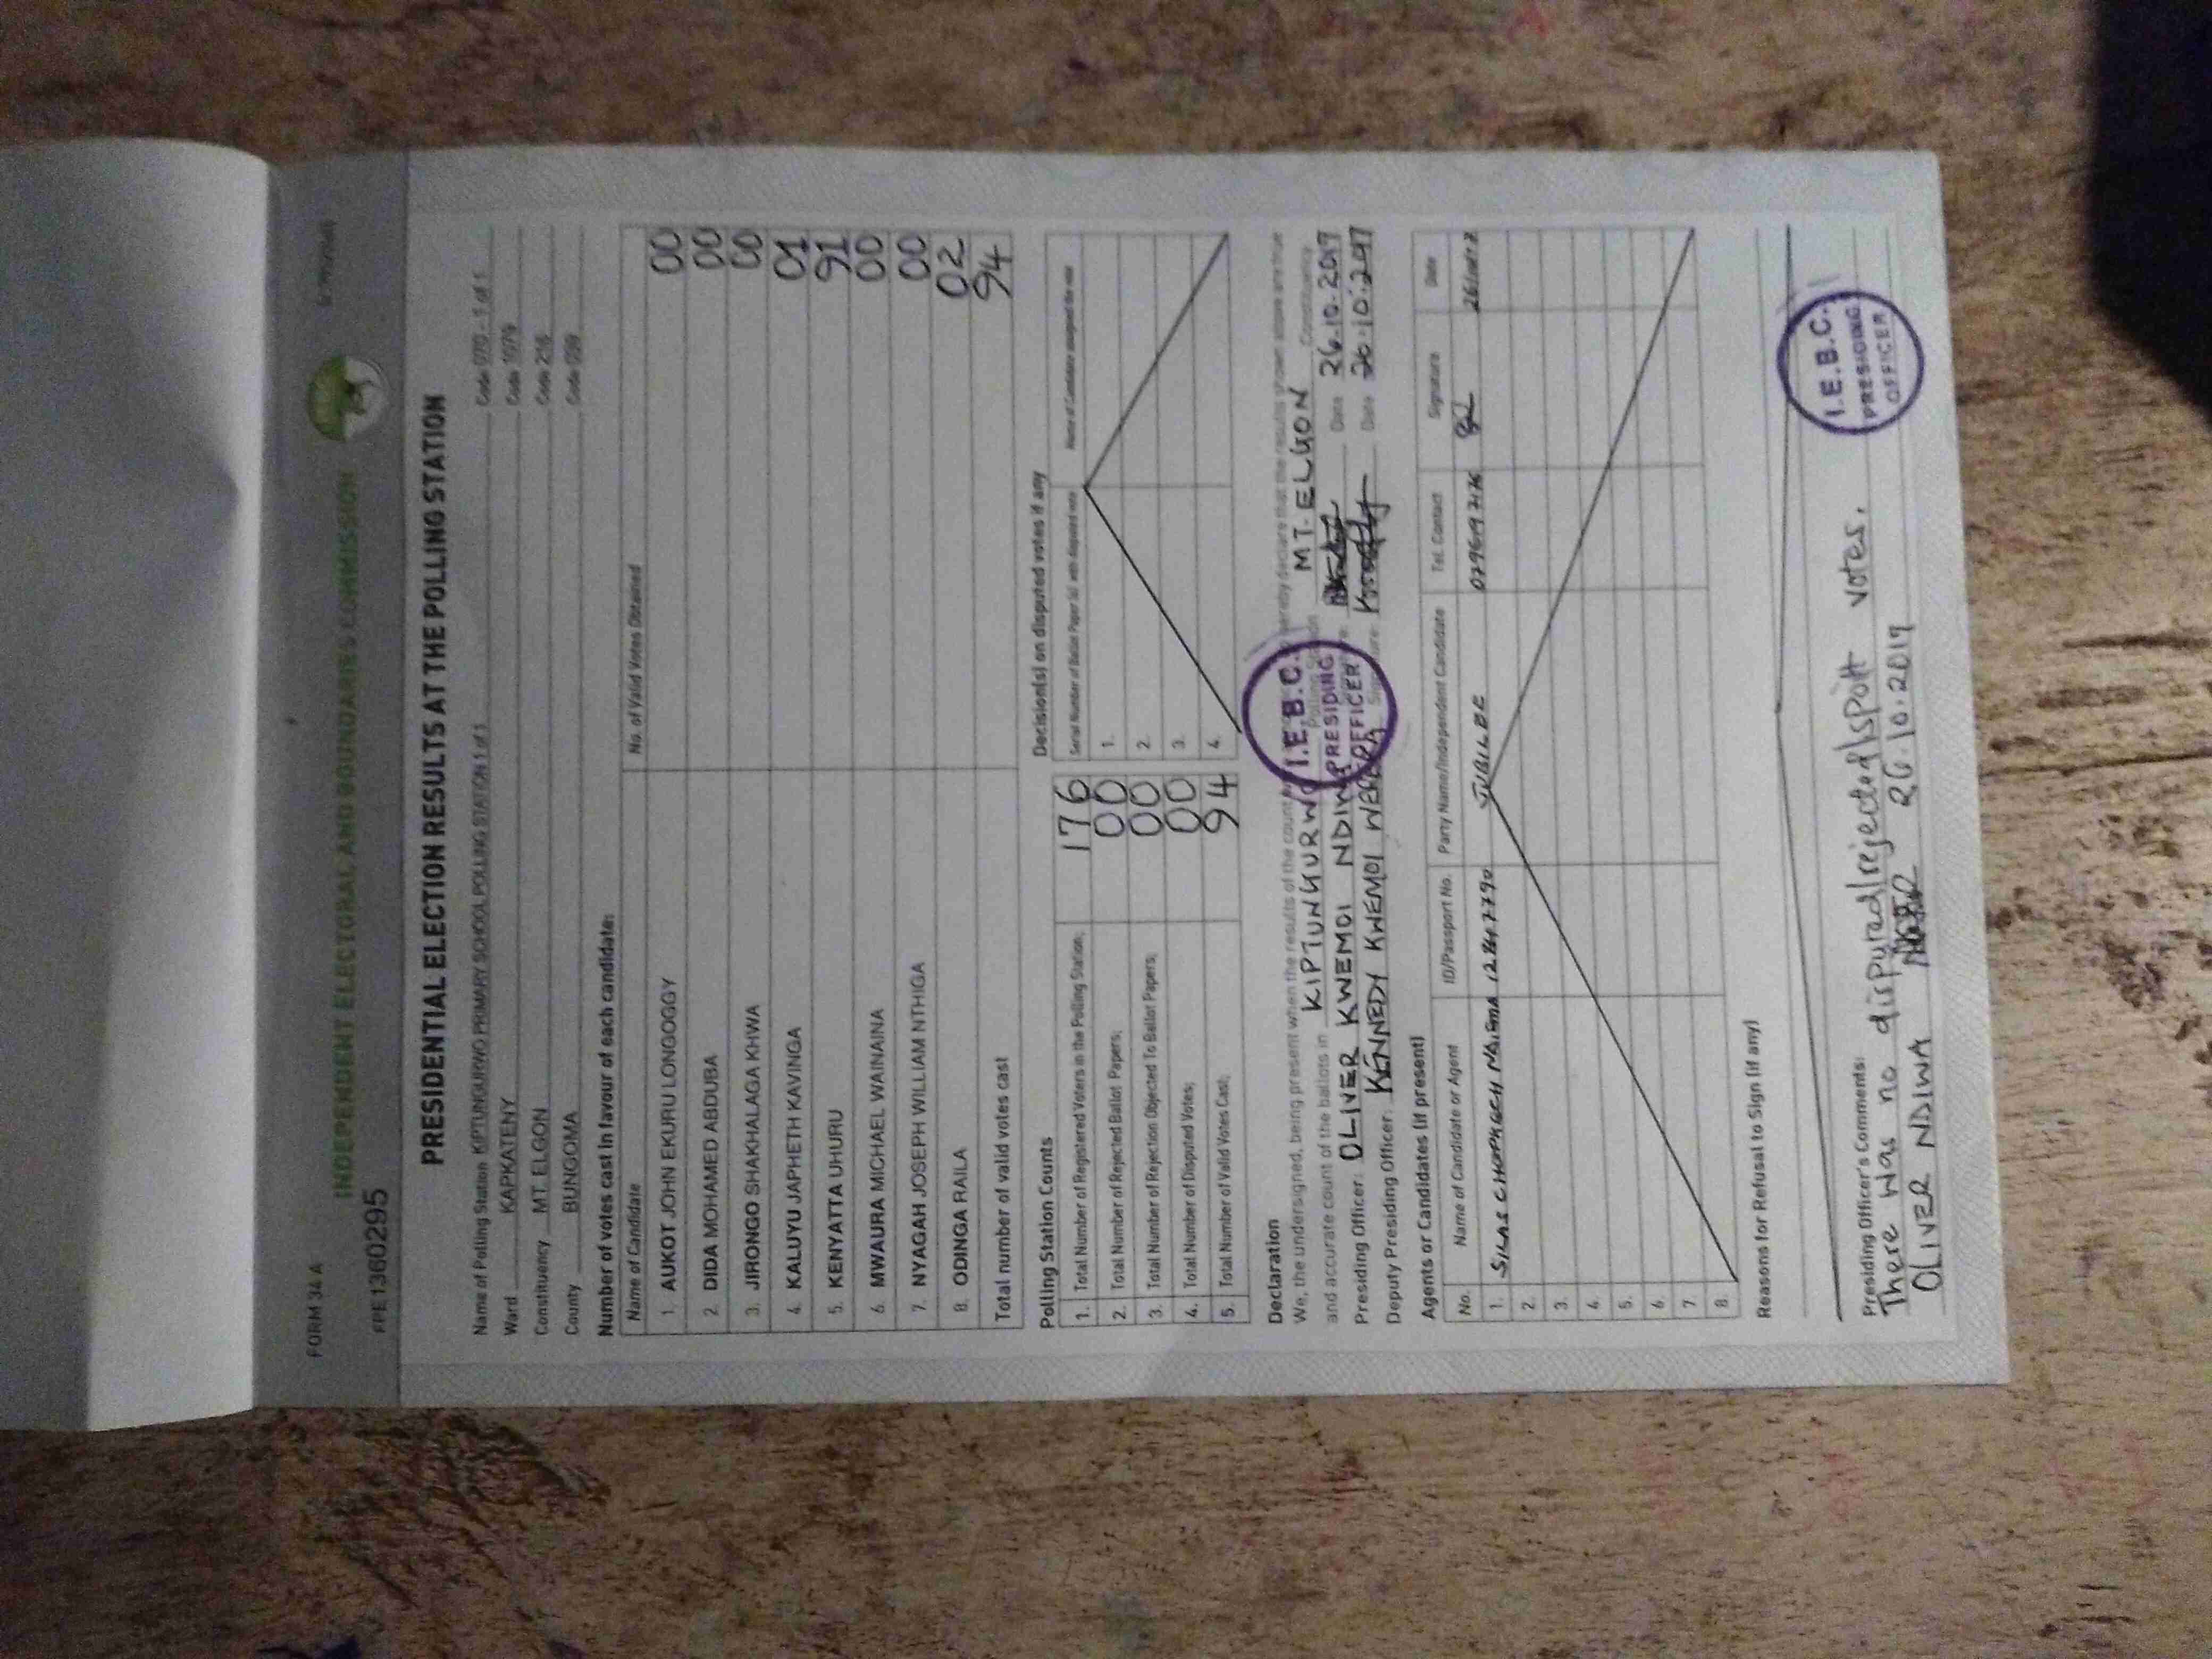 FORM 34 A
INDEPENDENT ELECTORAL AND BOUNDARIES COMMISSION
FPE 13602295
PRESIDENTIAL ELECTION RESULTS AT THE POLLING STATION
Name of Polling Station KIPTUNGURWO PRIMARY SCHOOL POLLING STATION 1 of 1 Code 070 - 1 of 1
Ward KAPKATENY Code 1079
Constituency MT. ELGON Code 216
County BUNGOMA Code 039
Number of votes cast in favour of each candidate:
Name of Candidate No. of Valid Votes Obtained
1. AUKOT JOHN EKURU LONGOGGY 00
2. DIDA MOHAMED ABDUBA 00
3. JIRONGO SHAKHALAGA KHWA 00
4. KALUYU JAPHETH KAVINGA 01
5. KENYATTA UHURU 91
6. MWAURA MICHAEL WAINAINA 00
7. NYAGAH JOSEPH WILLIAM NTHIGA 00
8. ODINGA RAILA 02
Total number of valid votes cast 94
Polling Station Counts
1. Total Number of Registered Voters in the Polling Station; 176
2. Total Number of Rejected Ballot Papers; 00
3. Total Number of Rejection Objected To Ballot Papers; 00
4. Total Number of Disputed Votes; 00
5. Total Number of Valid Votes Cast; 94
Decision(s) on disputed votes if any
Serial Number of Ballot Paper (s) with disputed vote Name of Candidate assigned the vote
1.
2.
3.
4.
Declaration
We, the undersigned, being present when the results of the count hereby declare that the results shown above are true
and accurate count of the ballots in KIPTUNGURWO Polling MT. ELGON Constituency
Presiding Officer: OLIVER KWEMOI NDIWA Date 26.10.2017
Deputy Presiding Officer: KENNEDY KWEMOI Date
I.E.B.C.
PRESIDING
OFFICER
Agents or Candidates (if present)
No. Name of Candidate or Agent ID/Passport No. Party Name/Independent Candidate Tel. Contact Signature Date
1. SILAS
2.
3.
4.
5.
6.
7.
8.
Reasons for Refusal to Sign (if any)
Presiding Officer's Comments:
There was no disputed/rejected/spoilt votes.
OLIVER NDIWA 26.10.2017
I.E.B.C.
PRESIDING
OFFICER